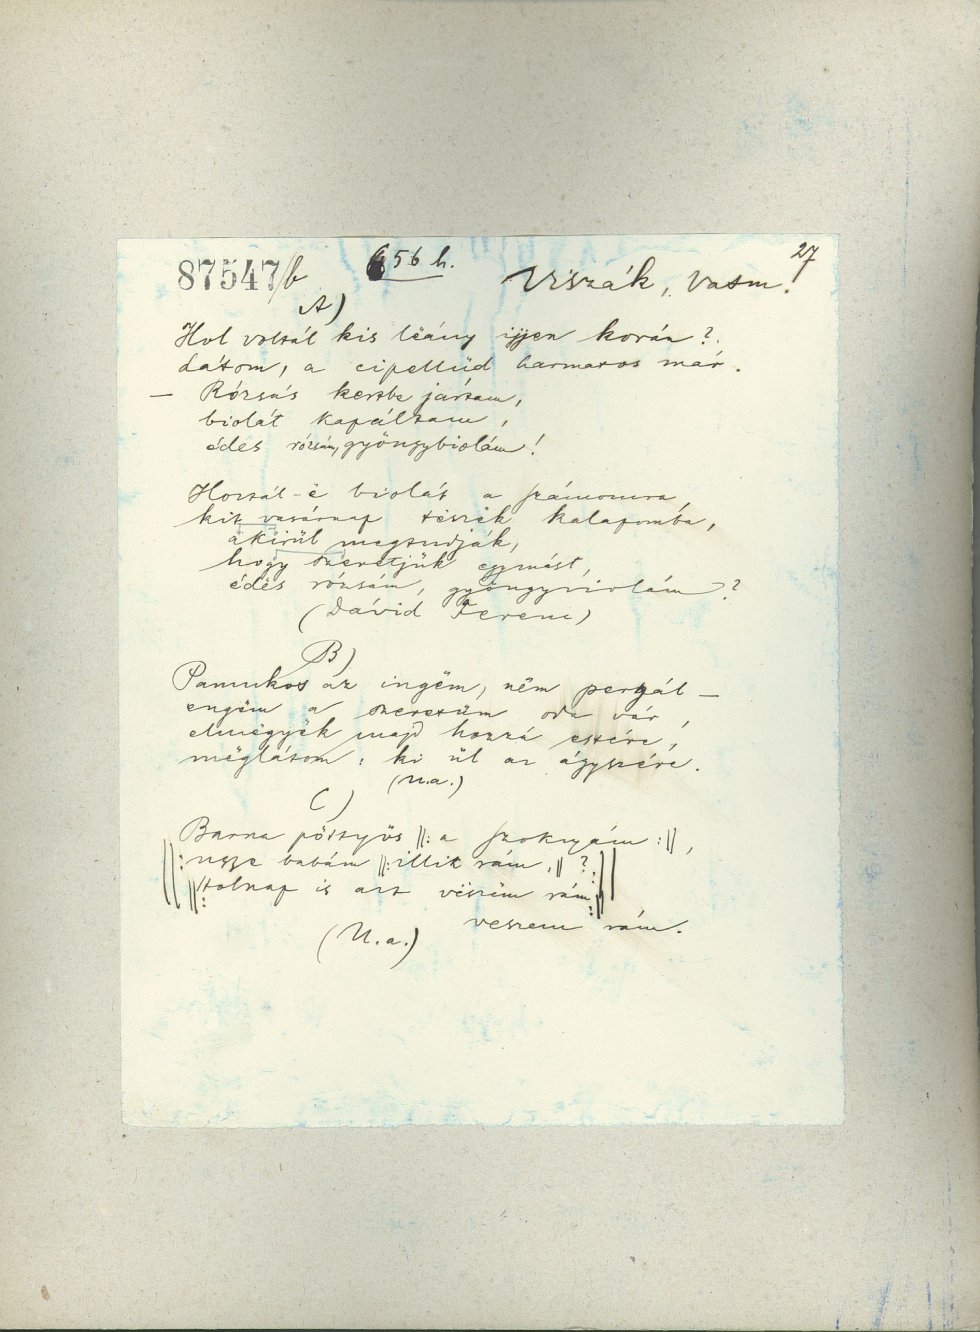 87547/b 656 h. 27
Viszák, Vasm.
A)
Hol voltál kis lëány ijjen korán?
Látom, a cipellüd harmatos már.
— Rózsás kertbe jártam,
biolát kapáltam,
édes rózsám, gyöngybiolám!
Hoztál-ë biolát a számomra,
kit vasárnap tëszëk kalapomba,
akirül megtudják,
hogy szeretjük egymást,
édës rózsám, gyöngyviolám?
(Dávid Ferenc)
B)
Pamukos az ingëm, nëm pergál —
engëm a szeretüm oda vár,
elmëgyëk majd hozzá estére,
mëglátom: ki ül az ágyszére.
(U.a.)
C)
Barna pöttyös ||: a szoknyám :||,
||: nizze babám ||: illik rám :|| ?:||
||: Holnap is azt vëszëm rám :||
veszem rám.
(U.a.)